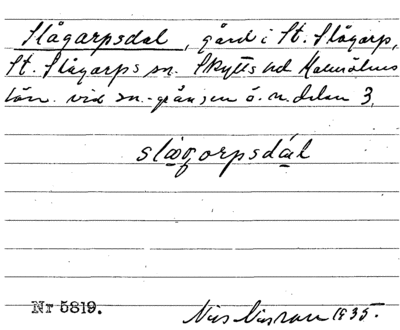 Slågarpsdal, gård i St. Slågarp,
St. Slågarps sn. Skytts hd Malmöhus
län. vid sn.-gränsen ö. n. delen 3.
slågorpsdál
Nr 5819.
Nils 1935.